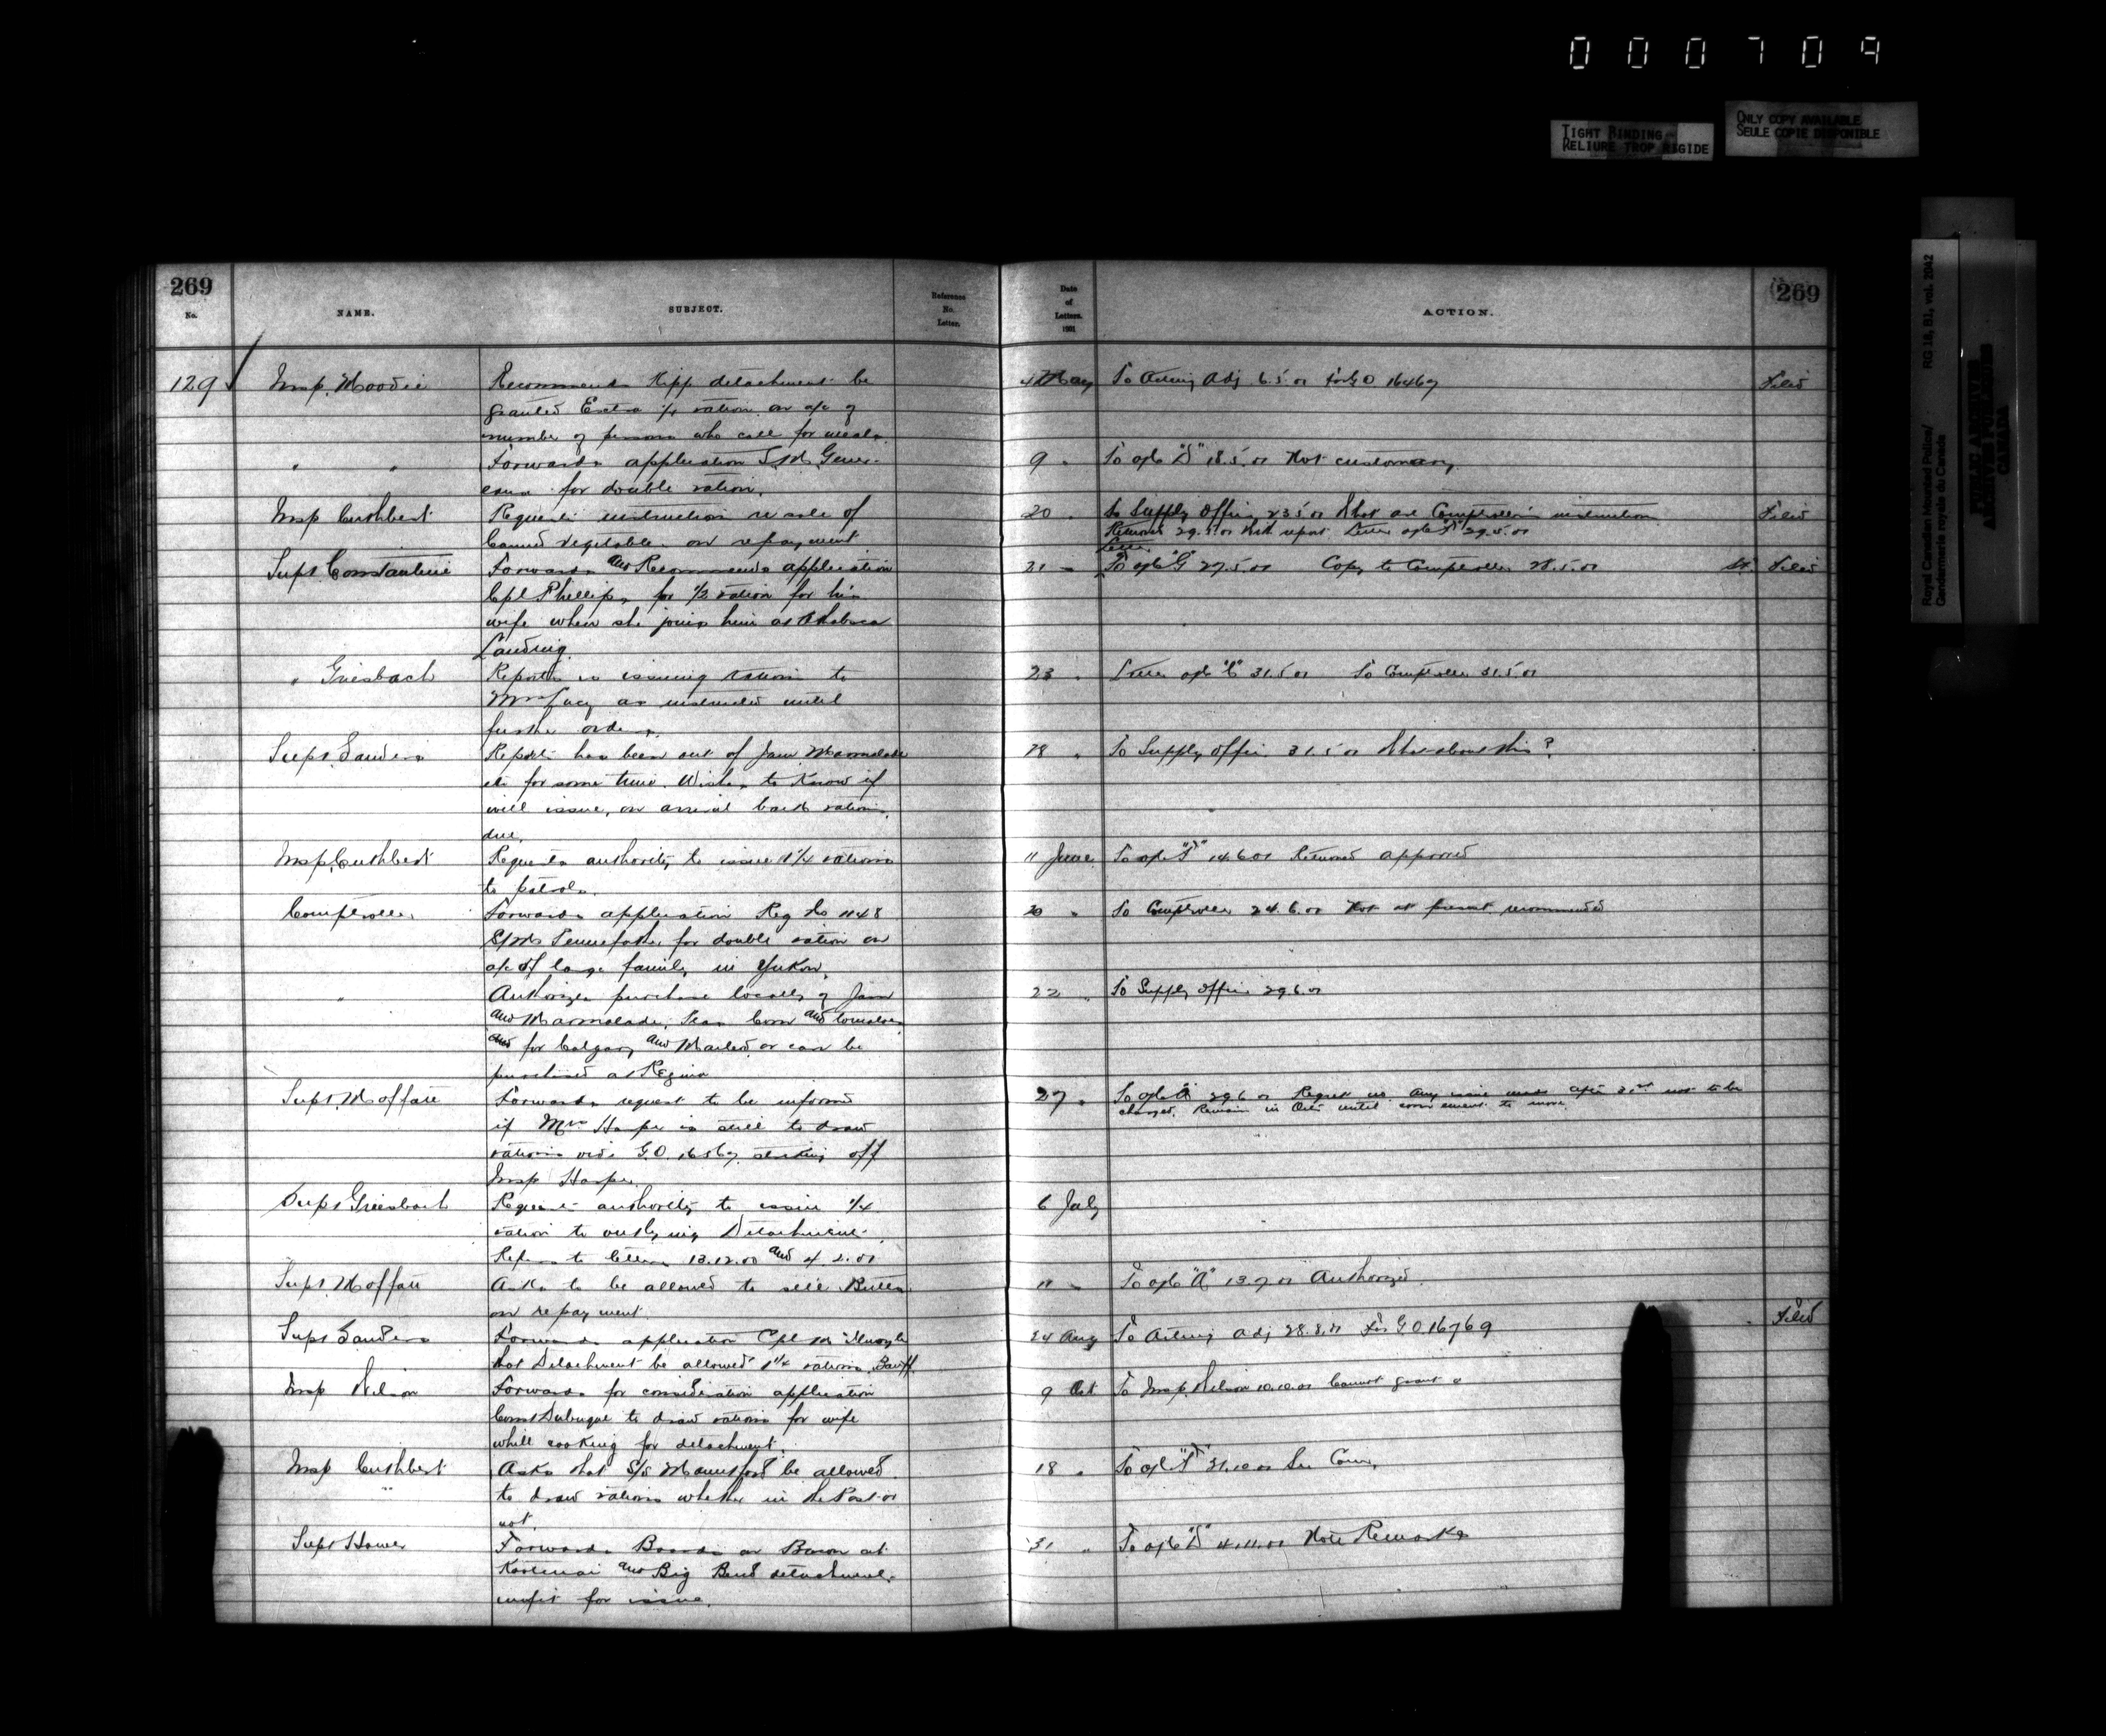 000709
TIGHT BINDING
RELIURE TROP RIGIDE
ONLY COPY AVAILABLE
SEULE COPIE DISPONIBLE
Royal Canadian Mounted Police/ RG 18, B1, vol. 2042
Gendarmerie royale du Canada
PUBLIC ARCHIVES
ARCHIVES PUBLIQUES
CANADA
269
No.
NAME.
SUBJECT.
Reference
No.
Letter.
Date
of
Letters.
1901
ACTION.
269
129 Insp. Moodie Recommends Kipp detachment be 4 May To Acting Adj 6.5.01 for G.O. 16467 Filed
granted Extra 1/4 ration on a/c of
number of persons who call for meals.
" " Forwards application S.M. 9 " To o/c "D" 18.5.01 Not customary
for double ration.
Insp Cuthbert Requests instruction re sale of 20 " To Supply Officer 23.5.01 What are Comptroller's instructions Filed
Canned vegetables on repayment Returned 29.5.01 With report Letter o/c "F" 29.5.01
Letter
Supt Constantine Forwards and Recommends application 21 " To o/c "G" 27.5.01 Copy to Comptroller 28.5.01 Filed
Cpl Phillips for 1/2 ration for his
wife when she joins him at Athabasca
Landing.
" Griesbach Reports is issuing rations to 23 " Letter o/c "C" 31.5.01 To Comptroller 31.5.01
Mrs as instructed until
further orders.
Supt Sanders Reports has been out of Jam Marmalade 28 " To Supply Officer 31.5.01 What about this?
etc for some time. Wishes to know if
will issue, on arrival back rations
due.
Insp Cuthbert Requests authority to issue 1 1/4 rations 11 June To o/c "F" 14.6.01 Returned approved
to patrols.
Comptroller Forwards application Reg No 1148 20 " To Comptroller 24.6.01 Not at present recommended
S/M Pennefather for double ration on
a/c of large family in Yukon.
" Authorizes purchase locally of Jam 22 " To Supply Officer 29.6.01
and Marmalade, Peas Corn and tomatoes
for Calgary and Macleod or can be
purchased at Regina
Supt. Moffatt Forwards request to be informed 27 " To o/c "A" 29.6.01 Regret no. Any issue made after 31st not to be
if Mrs Harper is still to draw charged. Remain in Qrs until convenient to move
rations vide G.O. 16567 striking off
Insp Harper.
Supt Griesbach Requests authority to issue 1/4 6 July
ration to outlying Detachments.
Refers to letters 13.12.00 and 4.2.01
Supt. Moffatt Asks to be allowed to sell Butter 11 " To o/c "A" 13.7.01 Authorized.
on repayment
Supt Sanders Forwards application Cpl 24 Aug To Acting Adj 28.8.01 For G.O. 16769 Filed
that Detachment be allowed 1 1/4 rations Banff.
Insp Wilson Forwards for consideration application 9 Oct To Insp. Wilson 10.10.01 Cannot grant
Const Dubuque to draw rations for wife
while cooking for detachment.
Insp Cuthbert Asks that S/S Mountford be allowed 18 " To o/c "F" 31.10.01
to draw rations whether in the Post or
not.
Supt Howe Forwards Boards on Bacon at 31 " To o/c "D" 4.11.01 Note Remarks
Kootenai and Big Bend detachments
unfit for issue.